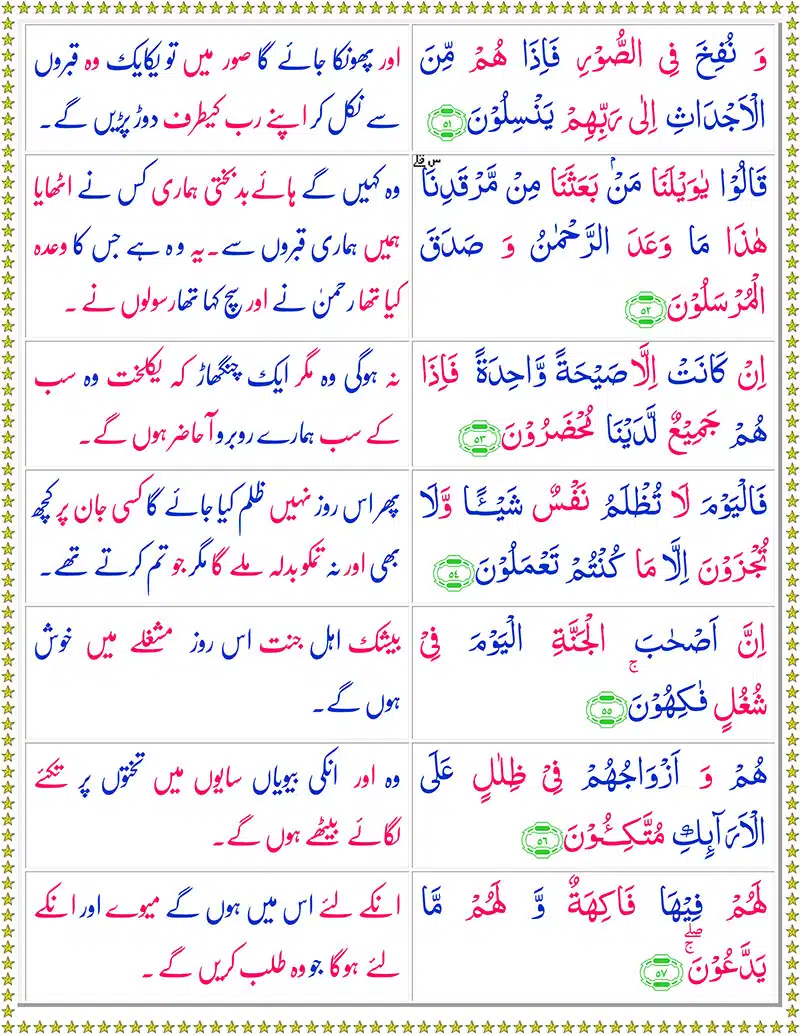 وَ نُفِخَ فِی الصُّوْرِ فَاِذَا هُمْ مِّنَ
الْاَجْدَاثِ اِلٰی رَبِّهِمْ یَنْسِلُوْنَ ۵۱
اور پھونکا جائے گا صور میں تو یکایک وہ قبروں
سے نکل کر اپنے رب کیطرف دوڑ پڑیں گے۔
قَالُوْا یٰوَیْلَنَا مَنْۢ بَعَثَنَا مِنْ مَّرْقَدِنَا
هٰذَا مَا وَعَدَ الرَّحْمٰنُ وَ صَدَقَ
الْمُرْسَلُوْنَ ۵۲
وہ کہیں گے ہائے بدبختی ہماری کس نے اٹھایا
ہمیں ہماری قبروں سے۔یہ وہ ہے جس کا وعدہ
کیا تھا رحمنٰ نے اور سچ کہا تھا رسولوں نے ۔
اِنْ كَانَتْ اِلَّا صَیْحَةً وَّاحِدَةً فَاِذَا
هُمْ جَمِیْعٌ لَّدَیْنَا مُحْضَرُوْنَ ۵۳
نہ ہوگی وہ مگر ایک چنگھاڑ کہ یکلخت وہ سب
کے سب ہمارے روبرو آ حاضر ہوں گے۔
فَالْیَوْمَ لَا تُظْلَمُ نَفْسٌ شَیْـًٔا وَّلَا
تُجْزَوْنَ اِلَّا مَا كُنْتُمْ تَعْمَلُوْنَ ۵۴
پھر اس روز نہیں ظلم کیا جائے گا کسی جان پر کچھ
بھی اور نہ تمکو بدلہ ملے گا مگر جو تم کرتے تھے۔
اِنَّ اَصْحٰبَ الْجَنَّةِ الْیَوْمَ فِیْ
شُغُلٍ فٰكِهُوْنَۚ ۵۵
بیشک اہل جنت اس روز مشغلے میں خوش
ہوں گے۔
هُمْ وَ اَزْوَاجُهُمْ فِیْ ظِلٰلٍ عَلَی
الْاَرَآىِٕكِ مُتَّكِـُٔوْنَ ۵۶
وہ اور انکی بیویاں سایوں میں تختوں پر تکئے
لگائے بیٹھے ہوں گے۔
لَهُمْ فِیْهَا فَاكِهَةٌ وَّ لَهُمْ مَّا
یَدَّعُوْنَۚۖ ۵۷
انکے لئے اس میں ہوں گے میوے اور انکے
لئے ہوگا جو وہ طلب کریں گے ۔